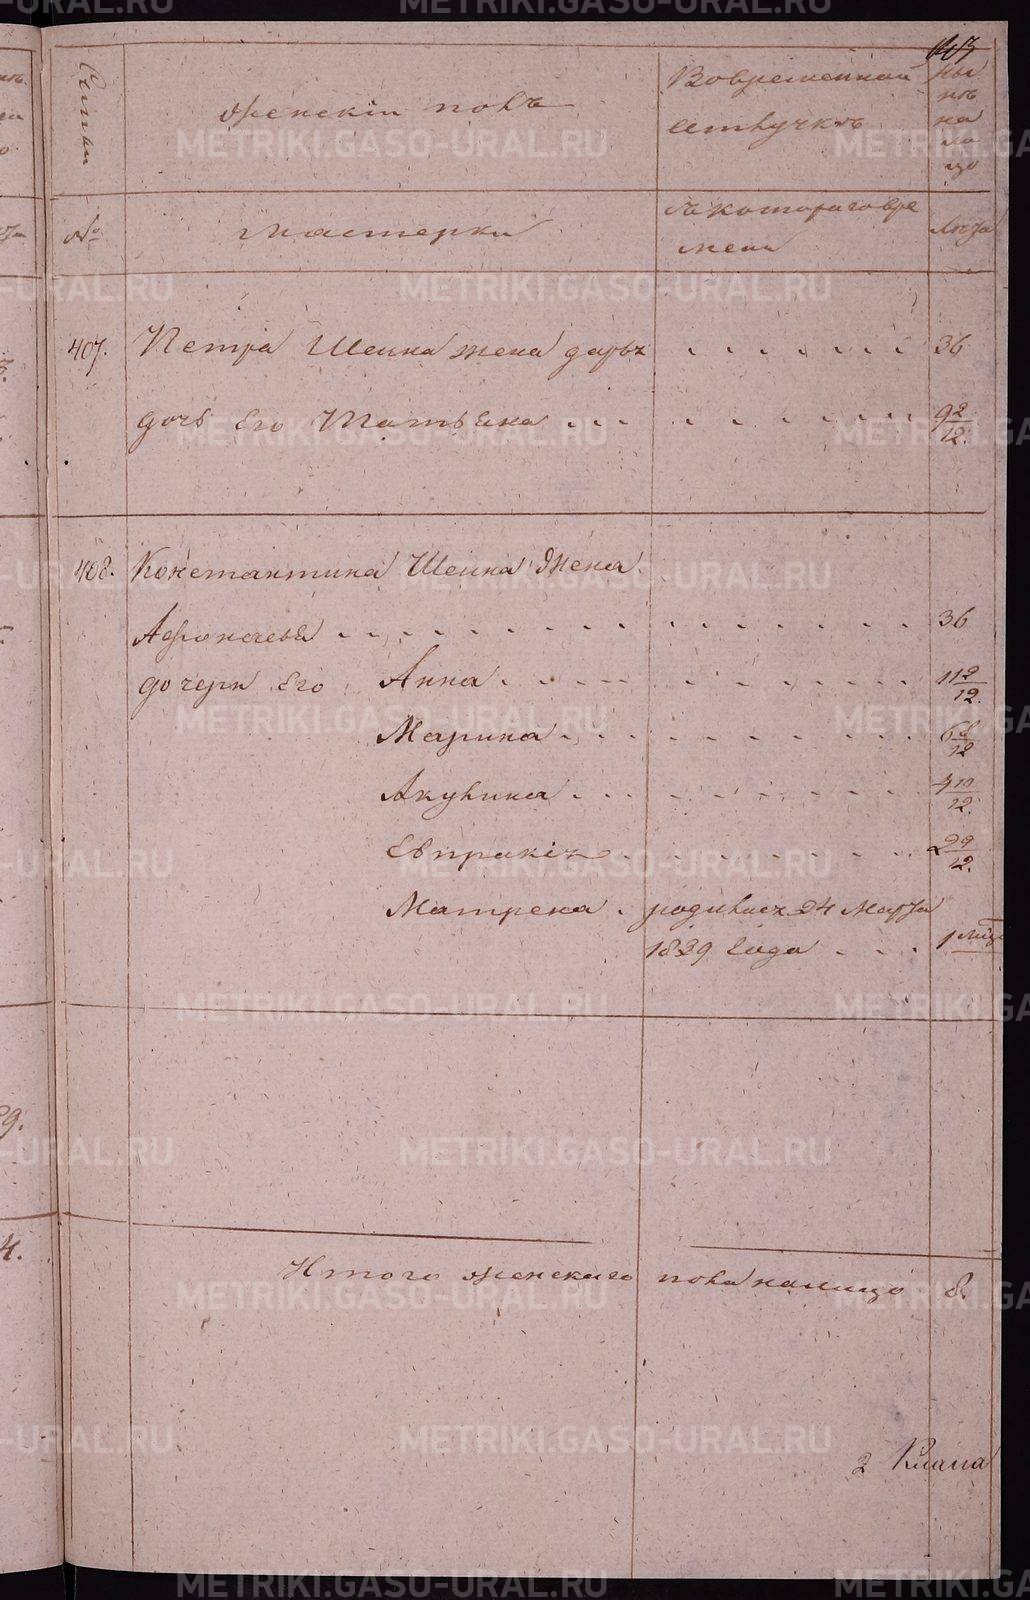 Семьи
Женскiй полъ
Вовременной
отлучкѣ
Ны
нѣ
на
ли
цо
№
Мастерки
Съкотораговре
мени
Лѣта
407. Петра Шеина жена дарья 36
дочь Его Татьяна 9 2/12.
408. Константина Шеина Жена
Афонасья 36
дочери Его Анна 11 2/12.
Марина 6 8/12
Акулина 4 10/12.
Евпраксiя 2 9/12.
Матрена родилась 24 Марта
1839 года 1 мѣс
Итого женскаго пола налицо 8.
METRIKI.GASO-URAL.RU